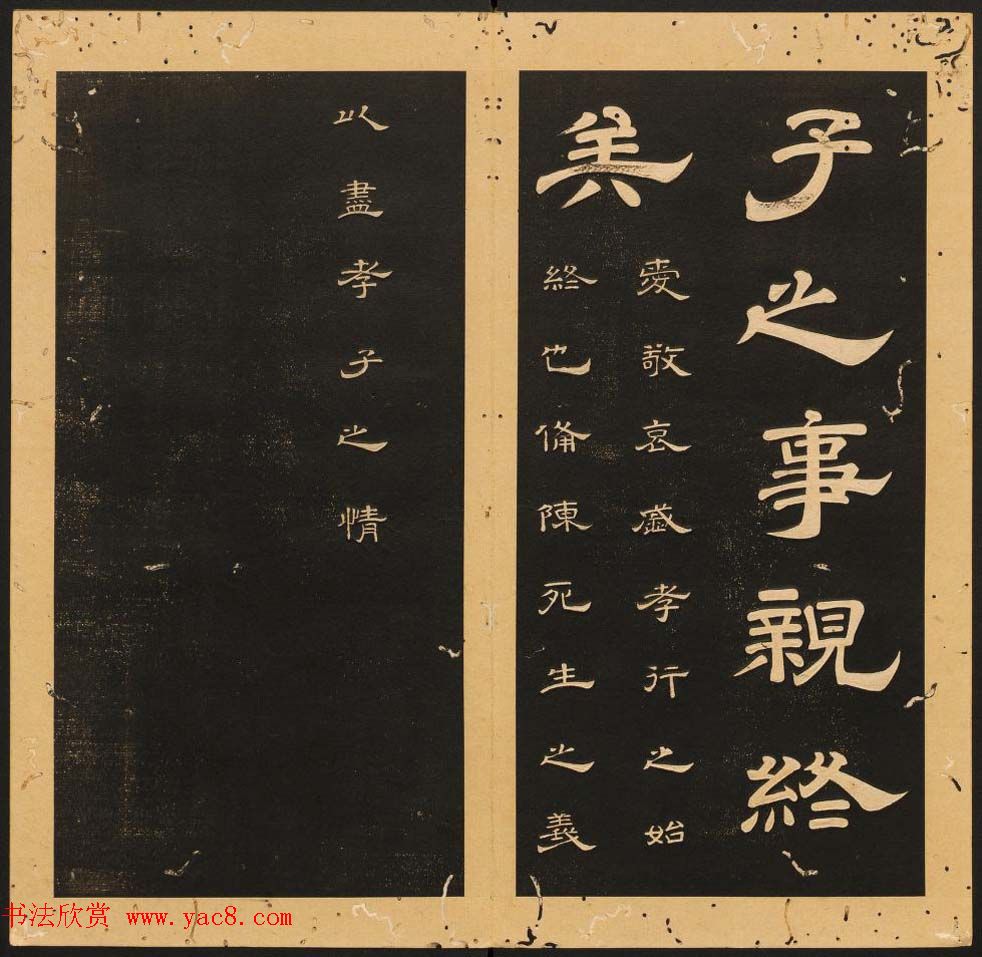 子之事親終
矣
愛敬哀慼孝行之始
終也備陳死生之義
以盡孝子之情
书法欣赏 www.yac8.com